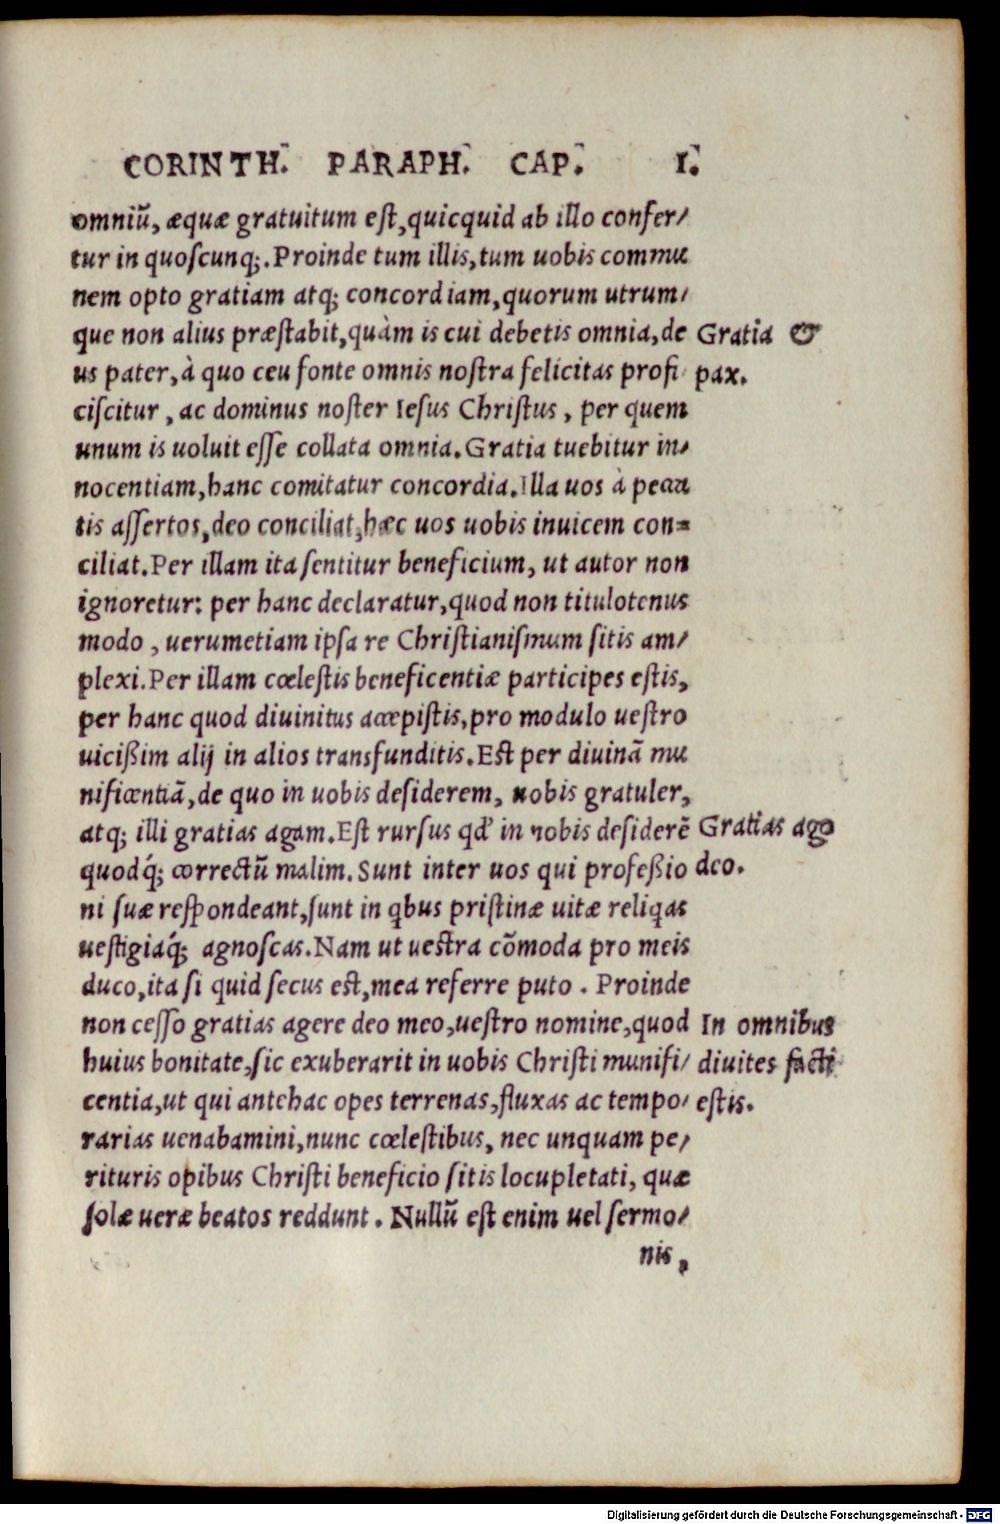 CORINTH. PARAPH. CAP. I.
omniũ, æquæ gratuitum eſt, quicquid ab illo confer/
tur in quoſcunq;. Proinde tum illis, tum uobis commu
nem opto gratiam atq; concordiam, quorum utrum/
que non alius præſtabit, quàm is cui debetis omnia, de
Gratia &
us pater, à quo ceu fonte omnis noſtra felicitas profi
pax.
ciſcitur, ac dominus noſter Ieſus Chriſtus, per quem
unum is uoluit eſſe collata omnia. Gratia tuebitur in/
nocentiam, hanc comitatur concordia. Illa uos à pecca
tis aſſertos, deo conciliat, hæc uos uobis inuicem con=
ciliat. Per illam ita ſentitur beneficium, ut autor non
ignoretur: per hanc declaratur, quod non titulotenus
modo, uerumetiam ipſa re Chriſtianiſmum ſitis am/
plexi. Per illam cœleſtis beneficentiæ participes eſtis,
per hanc quod diuinitus accepiſtis, pro modulo ueſtro
uicißim alij in alios transfunditis. Eſt per diuinã mu
nificentiã, de quo in uobis deſiderem, uobis gratuler,
atq; illi gratias agam. Eſt rurſus qd' in uobis deſiderẽ
Gratias ago
quodq́; correctũ malim. Sunt inter uos qui profeßio
deo.
ni ſuæ reſpondeant, ſunt in qbus priſtinæ uitæ reliqas
ueſtigiaq́; agnoſcas. Nam ut ueſtra cõmoda pro meis
duco, ita ſi quid ſecus eſt, mea referre puto. Proinde
non ceſſo gratias agere deo meo, ueſtro nomine, quod
In omnibus
huius bonitate, ſic exuberarit in uobis Chriſti munifi/
diuites facti
centia, ut qui antehac opes terrenas, fluxas ac tempo/
eſtis.
rarias uenabamini, nunc cœleſtibus, nec unquam pe/
rituris opibus Chriſti beneficio ſitis locupletati, quæ
ſolæ ueræ beatos reddunt. Nullũ eſt enim uel ſermo/
nis,
Digitalisierung gefördert durch die Deutsche Forschungsgemeinschaft - DFG